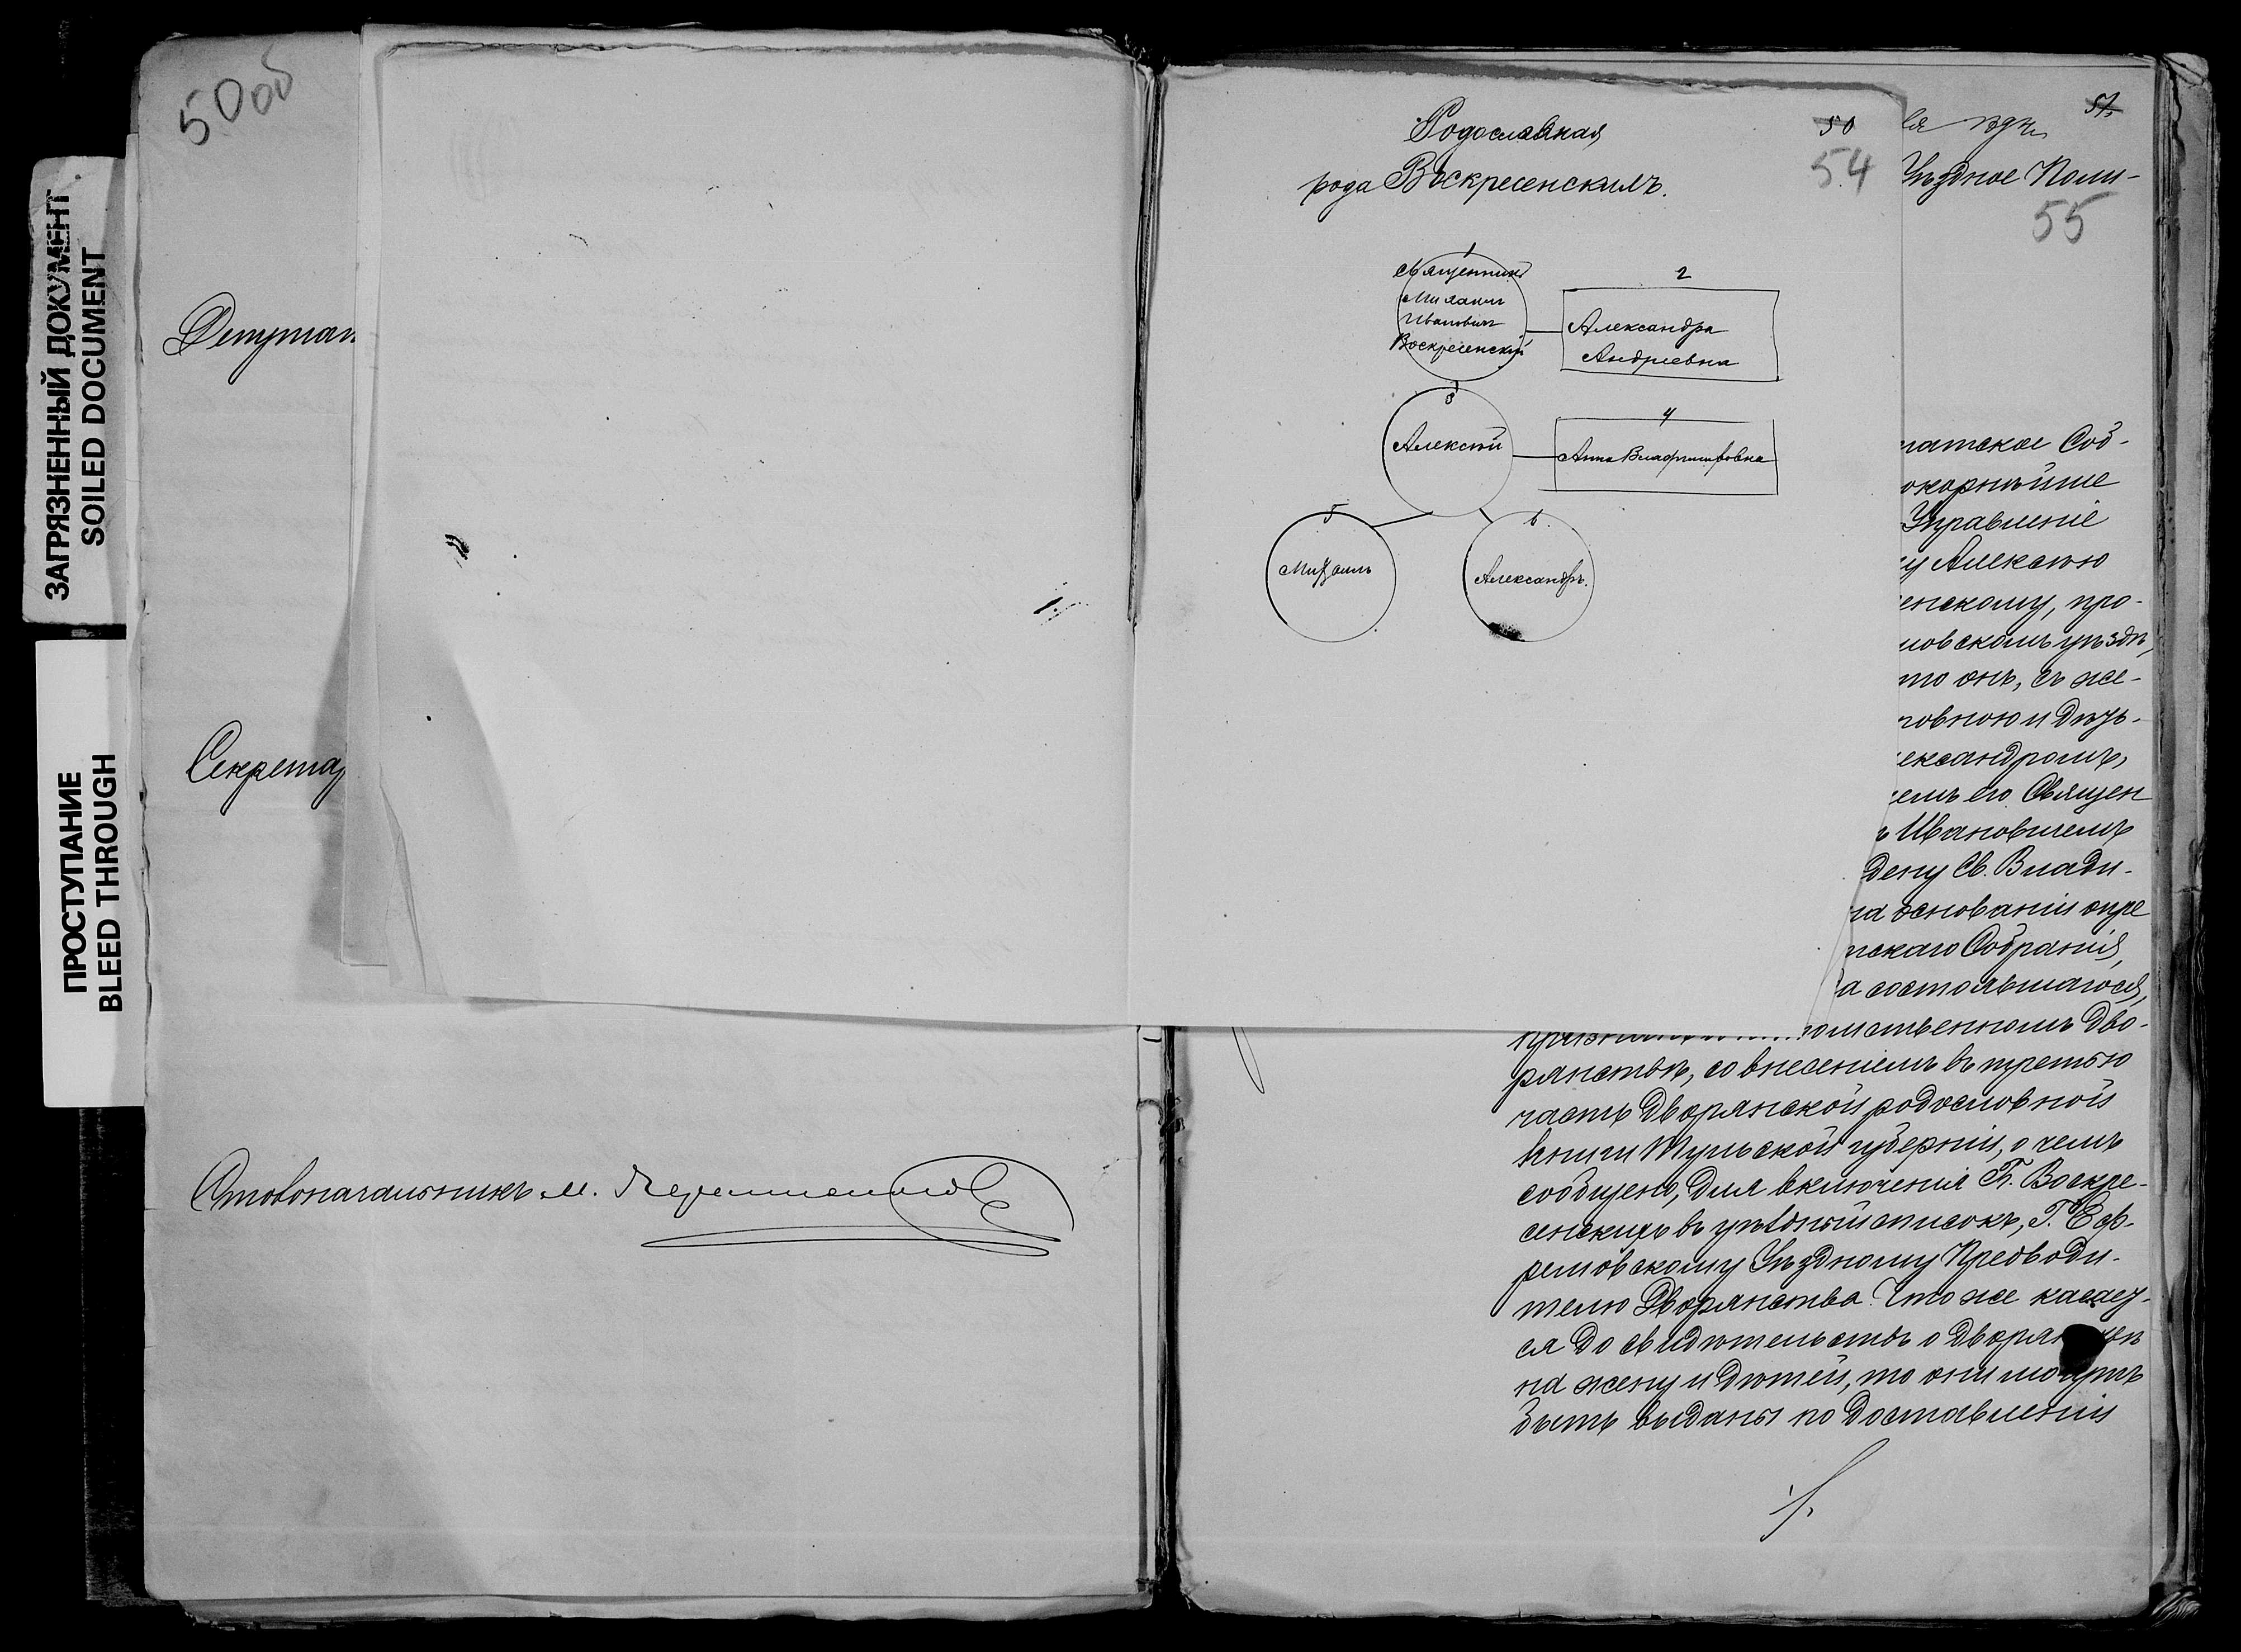 ЗАГРЯЗНЕННЫЙ ДОКУМЕНТ
SOILED DOCUMENT
ПРОСТУПАНИЕ
BLEED THROUGH
50об
Депутат
Секретар
Столоначальникъ
50
54
Родославная
рода Воскресенскихъ.
1
священникъ
Михаилъ
Ивановичъ
Воскресенскій
2
Александра
Андреевна
3
Алексѣй
4
Анна Владиміровна
5
Михаилъ
6.
Александръ.
51.
Уѣздное Поли-
55
патское Соб-
окорнѣйше
Управленіе
у Алексѣю
енскому, про-
мовскомъ уѣздѣ,
то онъ, съ же-
ровною и дѣть-
ександромъ,
емъ его Священ
ъ Ивановичемъ
дену Св. Влади-
на основаніи опре
тскаго Собранія,
а состоявшагося,
омственномъ Дво-
рянствѣ, со внесеніемъ въ третью
часть Дворянской родословной
книги Тульской губерніи, о чемъ
сообщено, для включенія Гг. Воскре-
сенскихъ въ уѣздный списокъ, Г. Еф-
ремовскому Уѣздному Предводи-
телю Дворянства. Что же касает-
ся до свидѣтельствъ о дворян
на жену и дѣтей, то они могутъ
быть выданы по доставленіи